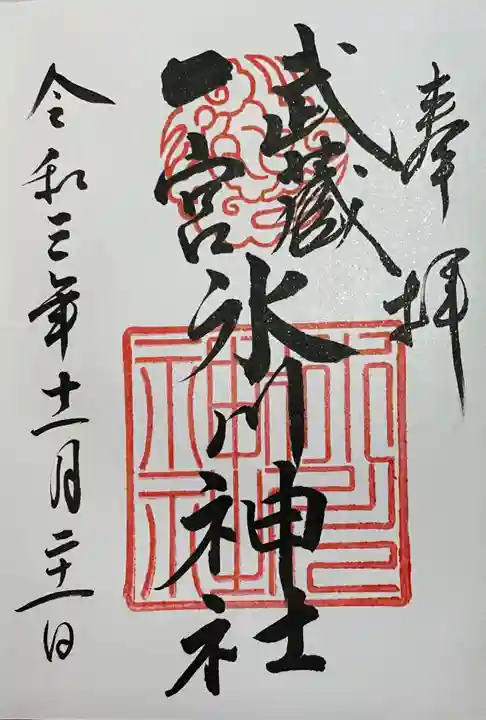 奉拝
武蔵
一宮
氷川神社
令和三年十一月二十一日
氷川
神社